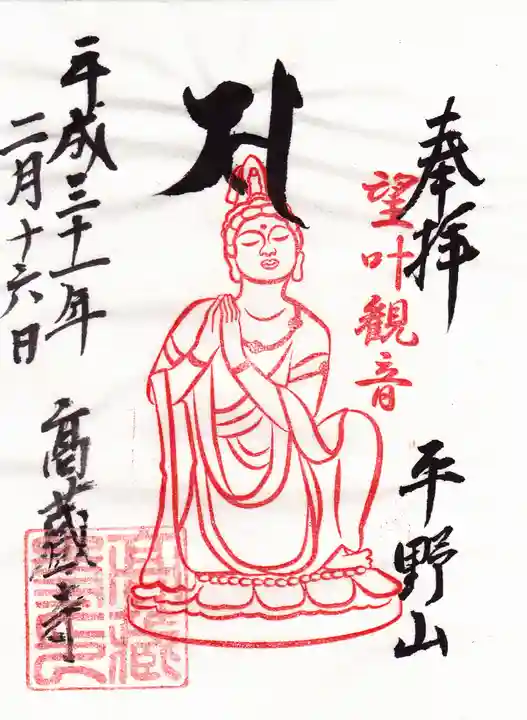 奉拝
望叶観音
平野山
平成三十一年
二月十六日
高蔵寺